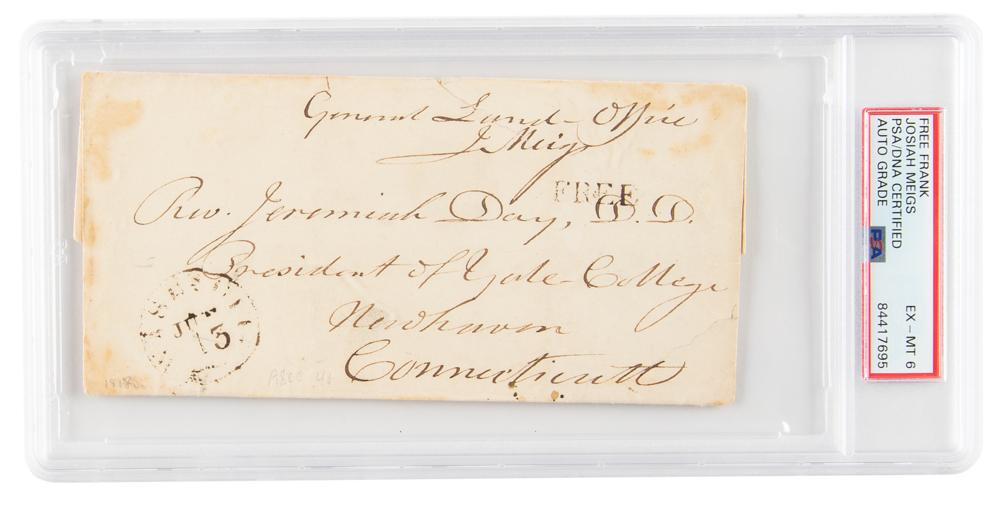 General Land-Office
J Meigs
FREE
Rev. Jeremiah Day, D.D.
President of Yale-College
Newhaven
Connecticutt
5
FREE FRANK
JOSIAH MEIGS
PSA/DNA CERTIFIED
AUTO GRADE
PSA
EX - MT 6
84417695